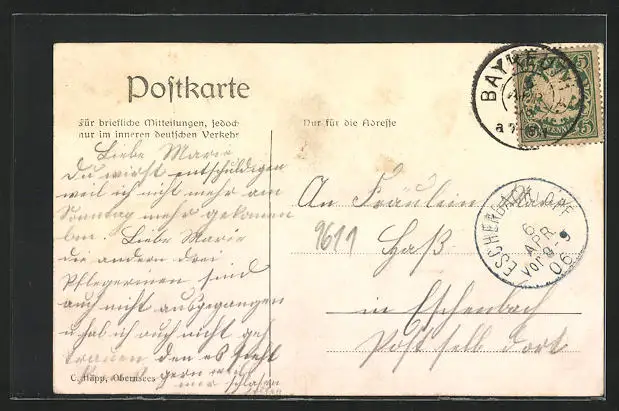 Postkarte
Für briefliche Mitteilungen, jedoch
nur im inneren deutschen Verkehr
Nur für die Adresse
Liebe Marie
Du wirst entschuldigen
weil ich nicht mehr am
Sonntag mehr gekommen
bin. Liebe Marie
die andern drei
Pflegerinen sind
auch nicht ausgegangen
u hab ich auch nicht geh
trauen den es sieht
gern wen
mer
C. Happ, Obernsees
An Fräulein Marie
9611
Haß
in Eschenbach
Post selb dort
BAYREUTH
5
PFENNIG
ESCHENBACH
6
APR
Vor 8-9
06